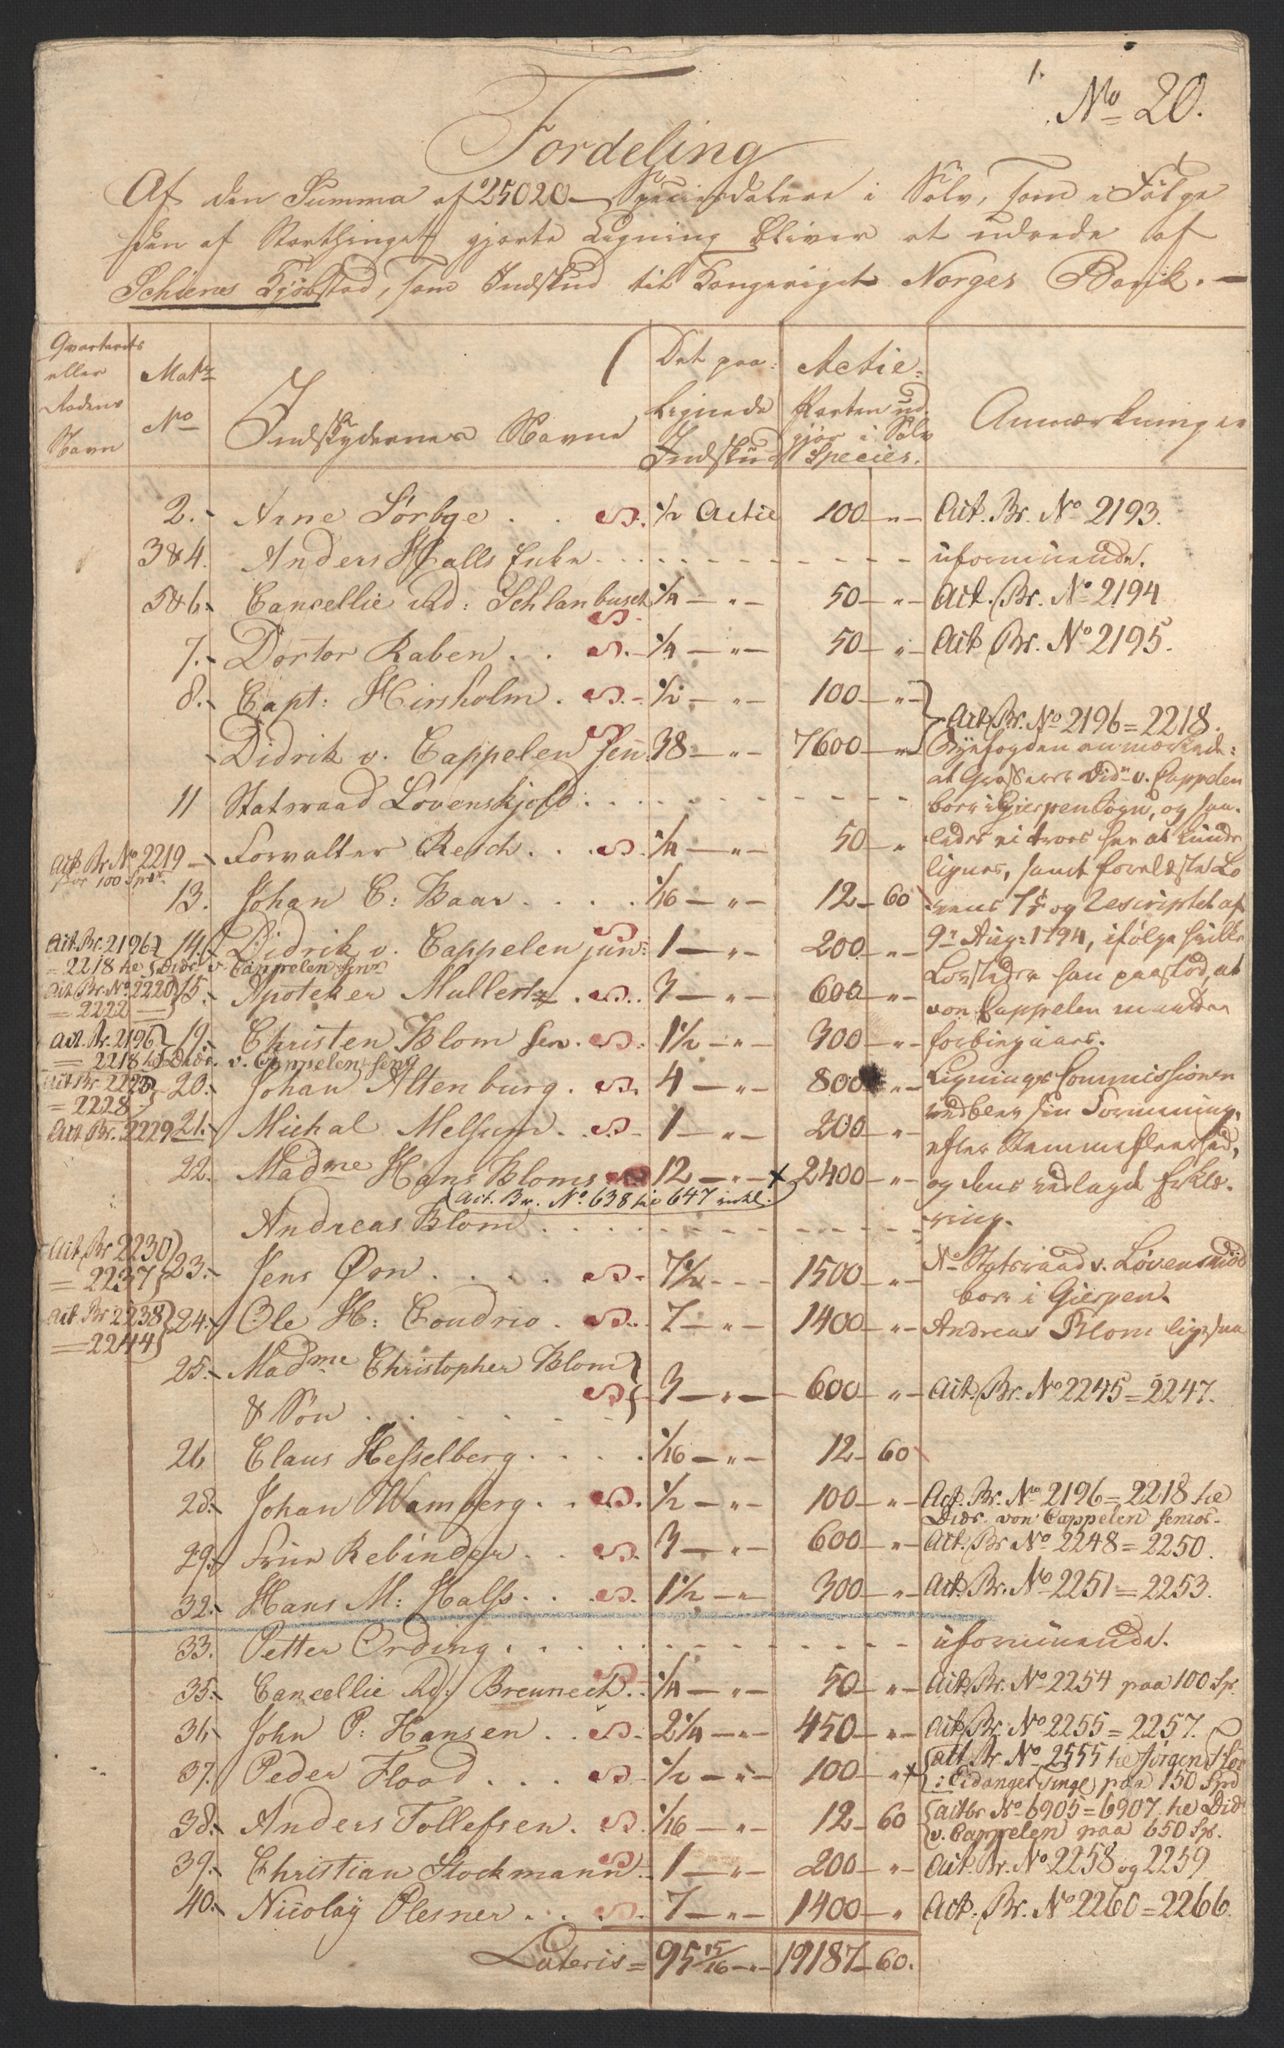 1.
No 20.
Fordeling
Af den Summa af 25020 Speciesdalere i Sølv, som i Følge
den af Storthinget gjorte Ligning bliver at udrede af
Schiens Kjøbstad, som Indskud til Kongeriget Norges Bank. —
Qvarterets eller Rodens Navn
Matr No
Indskydernes Navne
Det paalignede Indskud
Actie-Parten udgjør i Sølv Species.
Anmærkninger
2. Arne Sörbye . . S. 1/2 Actie 100 - " - Act. Br. No 2193.
3 & 4. Anders Halls Enke . . . . uformuende.
5 & 6. Cancellie Rd: Schlanbusch S. 1/4 - " - 50 - " - Act. Br. No 2194
7. Doctor Raben . . S. 1/4 - " - 50 - " - Act. Br. No 2195.
8. Capt: Hirsholm . S. 1/2 - " - 100 - " -
Didrik v. Cappelen Sen: S 38 - " - 7600 - " -
Act. Br. No 2196 = 2218.
Byefogden anmærkede:
at Grosserer Didr v. Cappelen
boer i Gierpen Sogn, og saa-
ledes ei troes her at kunde
lignes, samt forelæste Lo
vens og Rescriptet af
9de Aug: 1794, ifølge hvilke
Lovsteder han paastod, at
von Cappelen maatte
forbigaaes.
Lignings Commissionen
vedblev sin Formening,
efter Stemmefleerhed,
og dens vedlagde Erklæ-
ring.
11 Statsraad Lövenskjold . . .
Act. Br. No 2219 for 100 Spdr.
Forvalter Resch . . . S. 1/4 - " - 50 "
13. Johan C: Baar . . . . 1/16 - " - 12 - 60
Act. Br. 2196 = 2218 he Didr. v. Cappelen senr
14. Didrik v. Cappelen jun: 1 - " - 200 - " -
Act. Br. No 2220 = 2222
15. Apoteker Mullertz . S. 3 - " - 600 - " -
Act. Br. 2196 = 2218 he Didr. v. Cappelen senr
19. Christen Blom sen . S. 1 1/2 - " - 300 - " -
Act. Br. 2223 = 2228
20. Johan Altenburg . S. 4 - " - 800 - " -
Act. Br. 2229
21. Michal Melsum . S. 1 - " - 200 - " -
22. Madme Hans Bloms 12 - " - x 2400 - " -
(Act. Br. No 638 til 647 inkl.)
Andreas Blom . . . .
Act. Br. 2230 = 2237
23. Jens Øvn . . . . S. 7 1/2 - - - 1500 - " - No Statsraad v. Løvenskiold
boer i Gierpen.
Act. Br. 2238 = 2244
24. Ole H: Coudrio . S. 7 - " - 1400 - " - Andreas Blom ligesaa
25. Madme Christopher Blom
& Søn . . . . S 3 - " - 600 " - Act. Br. No 2245 = 2247.
26 Claus Hesselberg . . . . 1/16 - " - 12 - 60
28. Johan Wamberg . . S. 1/2 - " - 100 - " - Act. Br. No 2196 = 2218 he
Didr. von Cappelen senior.
29. Frue Rebinder . . S. 3 - " - 600 - " - Act. Br No 2248 = 2250.
32. Hans M: Halss . . . S. 1 1/2 - " - 300 - " - Act. Br. No 2251 = 2253.
33. Petter Ording . . . . uformuende.
35. Cancellie Rd: Breuneck . S 1/4 - " - 50 - " - Act. Br. No 2254 paa 100 Sp.
36 John P: Hansen . S. 2 1/4 - " - 450 - " - Act. Br. No 2255 = 2257.
37. Peder Flood . . . S. 1/2 - " - 100 - " x Act. Br No 2555 he Jørgen
: Eidanger Tinge paa 150 Spd
38. Anders Tollefsen . S. 1/16 - " - 12 - 60 Actbr No 6905 = 6907 he Did
v. Cappelen paa 650 Sp.
39. Christian Stockmann S. 1 - " - 200 - " - Act. Br. No 2258 og 2259
40. Nicolay Plesner . . . S. 7 - " - 1400 - " Act. Br. No 2260 = 2266.
Lateris = 95 15/16 - " - 19187 - 60.